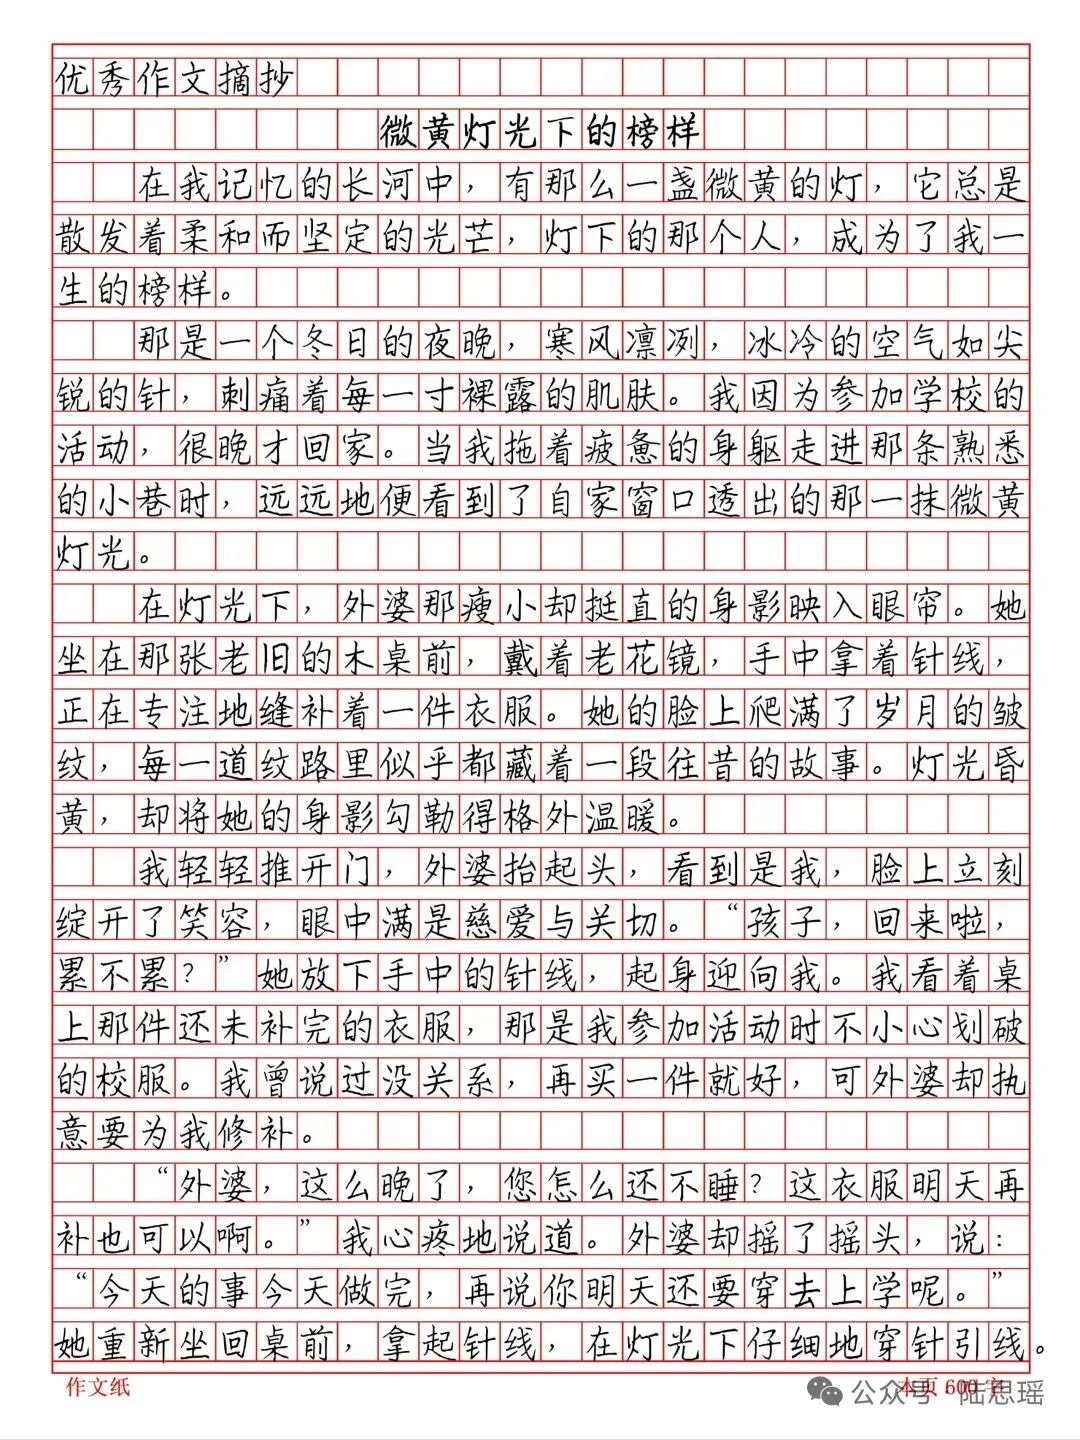 优秀作文摘抄
微黄灯光下的榜样
在我记忆的长河中，有那么一盏微黄的灯，它总是
散发着柔和而坚定的光芒，灯下的那个人，成为了我一
生的榜样。
那是一个冬日的夜晚，寒风凛冽，冰冷的空气如尖
锐的针，刺痛着每一寸裸露的肌肤。我因为参加学校的
活动，很晚才回家。当我拖着疲惫的身躯走进那条熟悉
的小巷时，远远地便看到了自家窗口透出的那一抹微黄
灯光。
在灯光下，外婆那瘦小却挺直的身影映入眼帘。她
坐在那张老旧的木桌前，戴着老花镜，手中拿着针线，
正在专注地缝补着一件衣服。她的脸上爬满了岁月的皱
纹，每一道纹路里似乎都藏着一段往昔的故事。灯光昏
黄，却将她的身影勾勒得格外温暖。
我轻轻推开门，外婆抬起头，看到是我，脸上立刻
绽开了笑容，眼中满是慈爱与关切。“孩子，回来啦，
累不累？”她放下手中的针线，起身迎向我。我看着桌
上那件还未补完的衣服，那是我参加活动时不小心划破
的校服。我曾说过没关系，再买一件就好，可外婆却执
意要为我修补。
“外婆，这么晚了，您怎么还不睡？这衣服明天再
补也可以啊。”我心疼地说道。外婆却摇了摇头，说：
“今天的事今天做完，再说你明天还要穿去上学呢。”
她重新坐回桌前，拿起针线，在灯光下仔细地穿针引线。
作文纸 本页600字
公众号·陆思瑶